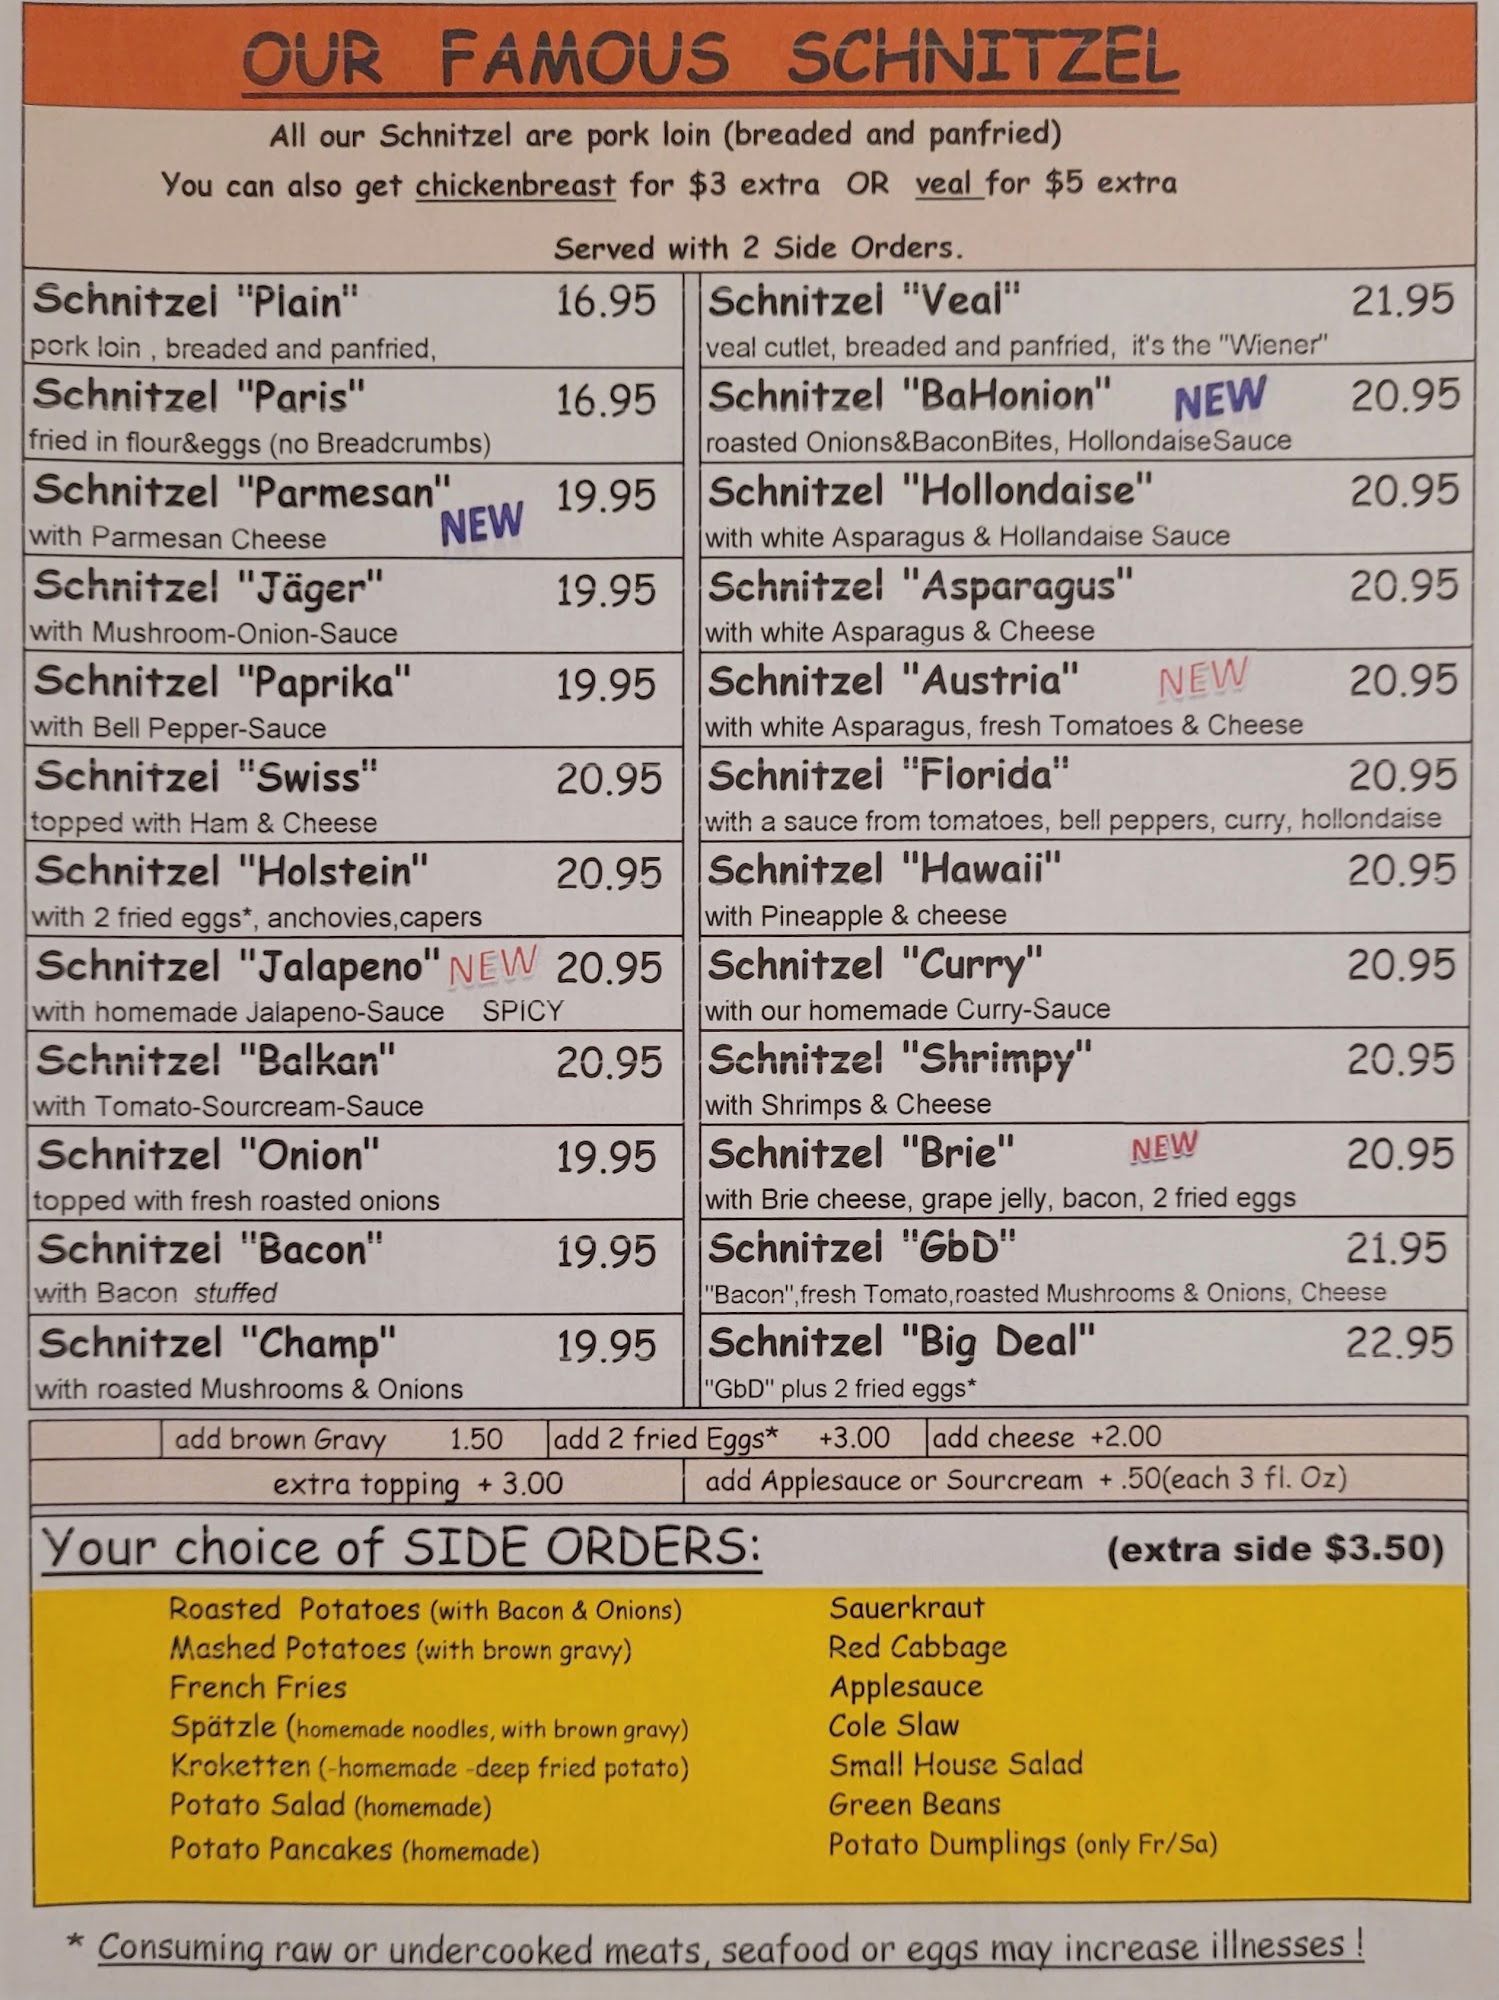 OUR FAMOUS SCHNITZEL
All our Schnitzel are pork loin (breaded and panfried)
You can also get chickenbreast for $3 extra OR veal for $5 extra
Served with 2 Side Orders.
Schnitzel "Plain" 16.95
pork loin , breaded and panfried,
Schnitzel "Paris" 16.95
fried in flour&eggs (no Breadcrumbs)
Schnitzel "Parmesan" 19.95
with Parmesan Cheese NEW
Schnitzel "Jäger" 19.95
with Mushroom-Onion-Sauce
Schnitzel "Paprika" 19.95
with Bell Pepper-Sauce
Schnitzel "Swiss" 20.95
topped with Ham & Cheese
Schnitzel "Holstein" 20.95
with 2 fried eggs*, anchovies,capers
Schnitzel "Jalapeno" NEW 20.95
with homemade Jalapeno-Sauce SPICY
Schnitzel "Balkan" 20.95
with Tomato-Sourcream-Sauce
Schnitzel "Onion" 19.95
topped with fresh roasted onions
Schnitzel "Bacon" 19.95
with Bacon stuffed
Schnitzel "Champ" 19.95
with roasted Mushrooms & Onions
Schnitzel "Veal" 21.95
veal cutlet, breaded and panfried, it's the "Wiener"
Schnitzel "BaHonion" NEW 20.95
roasted Onions&BaconBites, HollondaiseSauce
Schnitzel "Hollondaise" 20.95
with white Asparagus & Hollandaise Sauce
Schnitzel "Asparagus" 20.95
with white Asparagus & Cheese
Schnitzel "Austria" NEW 20.95
with white Asparagus, fresh Tomatoes & Cheese
Schnitzel "Florida" 20.95
with a sauce from tomatoes, bell peppers, curry, hollondaise
Schnitzel "Hawaii" 20.95
with Pineapple & cheese
Schnitzel "Curry" 20.95
with our homemade Curry-Sauce
Schnitzel "Shrimpy" 20.95
with Shrimps & Cheese
Schnitzel "Brie" NEW 20.95
with Brie cheese, grape jelly, bacon, 2 fried eggs
Schnitzel "GbD" 21.95
"Bacon",fresh Tomato,roasted Mushrooms & Onions, Cheese
Schnitzel "Big Deal" 22.95
"GbD" plus 2 fried eggs*
add brown Gravy 1.50 add 2 fried Eggs* +3.00 add cheese +2.00
extra topping + 3.00 add Applesauce or Sourcream + .50(each 3 fl. Oz)
Your choice of SIDE ORDERS: (extra side $3.50)
Roasted Potatoes (with Bacon & Onions)
Mashed Potatoes (with brown gravy)
French Fries
Spätzle (homemade noodles, with brown gravy)
Kroketten (-homemade -deep fried potato)
Potato Salad (homemade)
Potato Pancakes (homemade)
Sauerkraut
Red Cabbage
Applesauce
Cole Slaw
Small House Salad
Green Beans
Potato Dumplings (only Fr/Sa)
* Consuming raw or undercooked meats, seafood or eggs may increase illnesses !